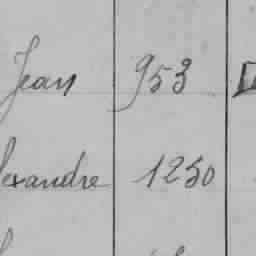 Jean 953
exandre 1250